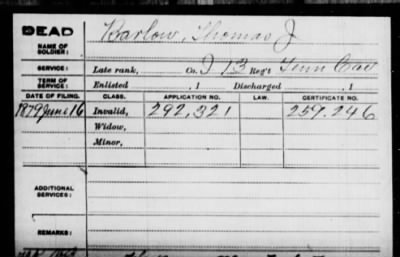 DEAD
NAME OF SOLDIER:
Barlow, Thomas J
SERVICE:
Late rank, Co. I 13 Reg't Tenn Cav
TERM OF SERVICE:
Enlisted , 1 Discharged , 1
DATE OF FILING. CLASS. APPLICATION NO. LAW. CERTIFICATE NO.
1879 June 16 Invalid, 292,321 259.246
Widow,
Minor,
ADDITIONAL SERVICES:
REMARKS: